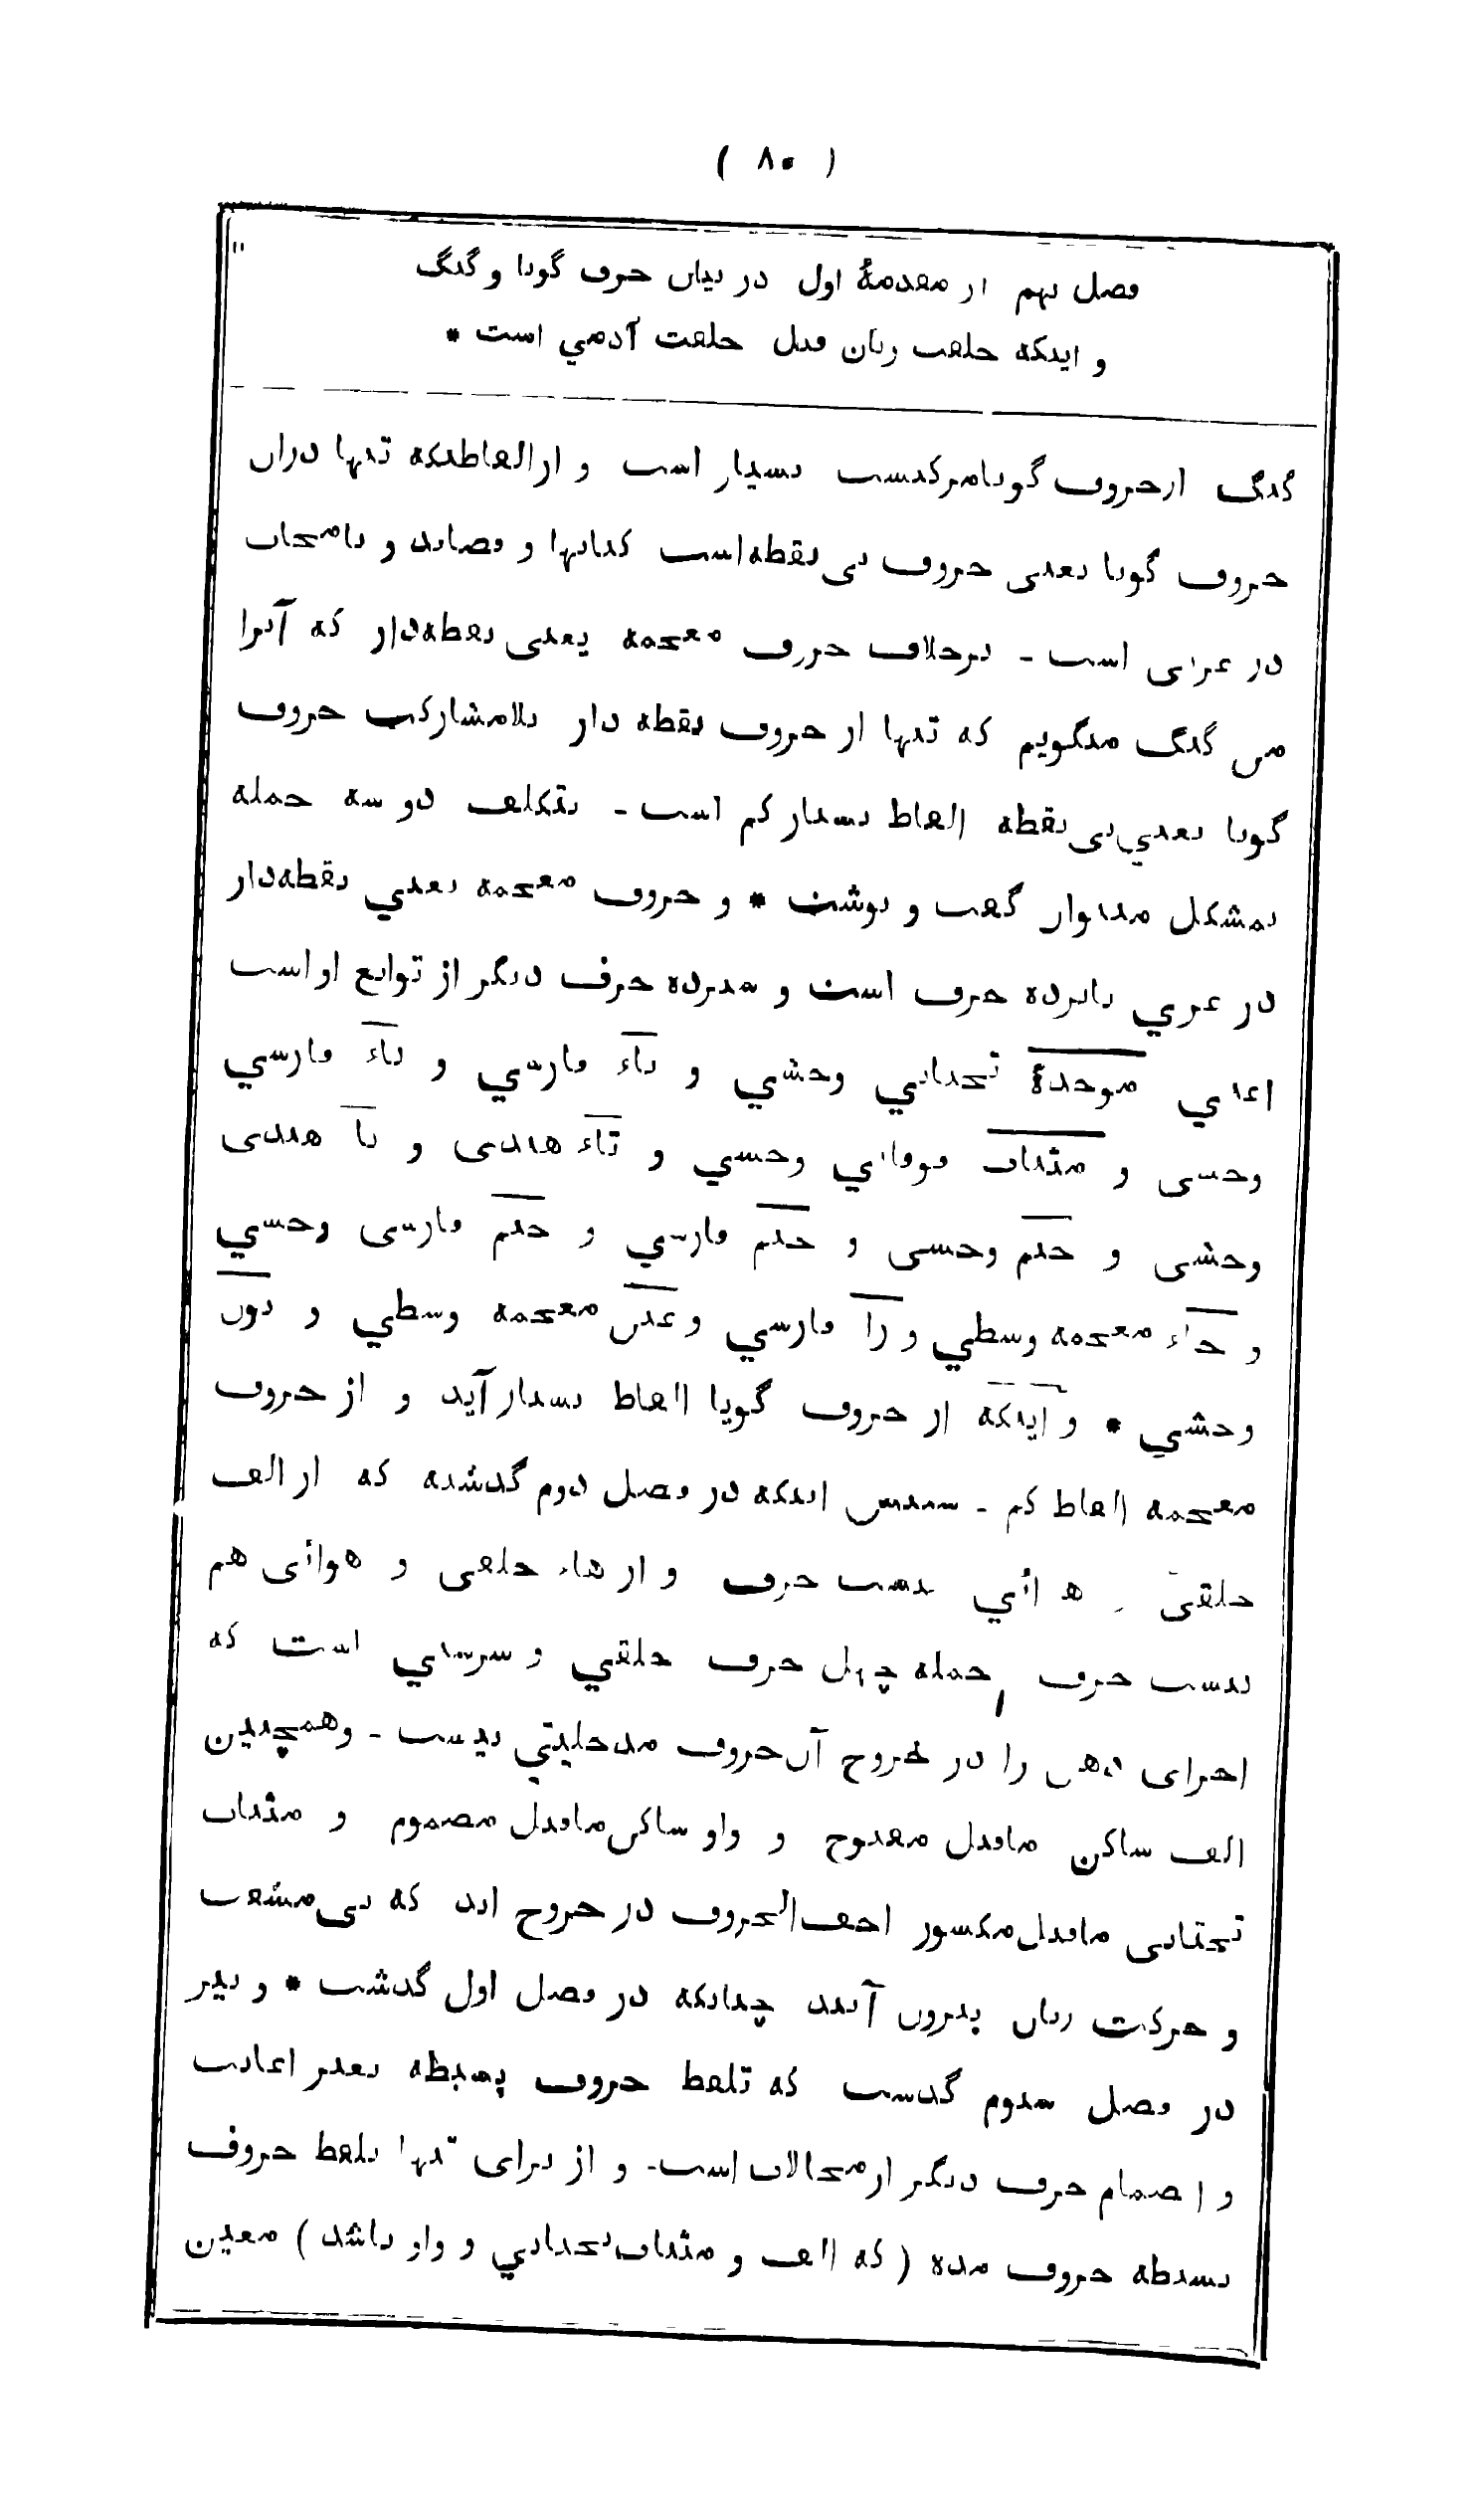 ( ۸۰ )
فصل نهم از مقدمهٔ اول در بیان حرف گویا و گنگ
و اینکه خلقت زبان قبل خلقت آدمي است *
گنگ از حروف گویا مرکبست بسیار است و از الفاظیکه تنها دران
حروف گویا یعنی حروف بی نقطه است کتابها و قصاید و
در عربی است - برخلاف حروف معجمه یعنی نقطه‌دار که آنرا
من گنگ میگویم که تنها از حروف نقطه دار بلامشارکت حروف
گویا یعني بی نقطه الفاظ بسیار کم است - بتکلف دو سه جمله
بمشکل میتوان گفت و نوشت * و حروف معجمه یعني نقطه‌دار
در عربي پانزده حرف است و سیزده حرف دیگر از توابع او است
اعني موحدهٔ تحتاني وحشي و باء فارسي و باء فارسي
وحشی و مثنات فوقاني وحشي و تاء هندی و تا هندی
وحشی و جیم وحشی و جیم فارسي و جیم فارسی وحشي
و خاء معجمه وسطي و زا فارسي و غین معجمه وسطي و نون
وحشي * و اینکه از حروف گویا الفاظ بسیار آید و از حروف
معجمه الفاظ کم - سببش اینکه در فصل دوم گذشته که از الف
حلقی و هوائي بیست حرف و از هاء حلقی و هوائی هم
بیست حرف جمله چهل حرف حلقي و سرسامي است که
اجزای دهن را در خروج آن حروف مدخلیتي نیست - و همچنین
الف ساکن ماقبل مفتوح و واو ساکن ماقبل مضموم و مثنات
تحتانی ماقبل مکسور اخف الحروف در خروج اند که بی مشقت
و حرکت زبان بیرون آیند چنانکه در فصل اول گذشت * و نیز
در فصل سوم گذشت که تلفظ حروف بسیطه بغیر اعانت
و انضمام حرف دیگر از محالات است - و از برای تنها تلفظ حروف
بسیطه حروف مده ( که الف و مثنات تحتاني و واو باشد ) معین